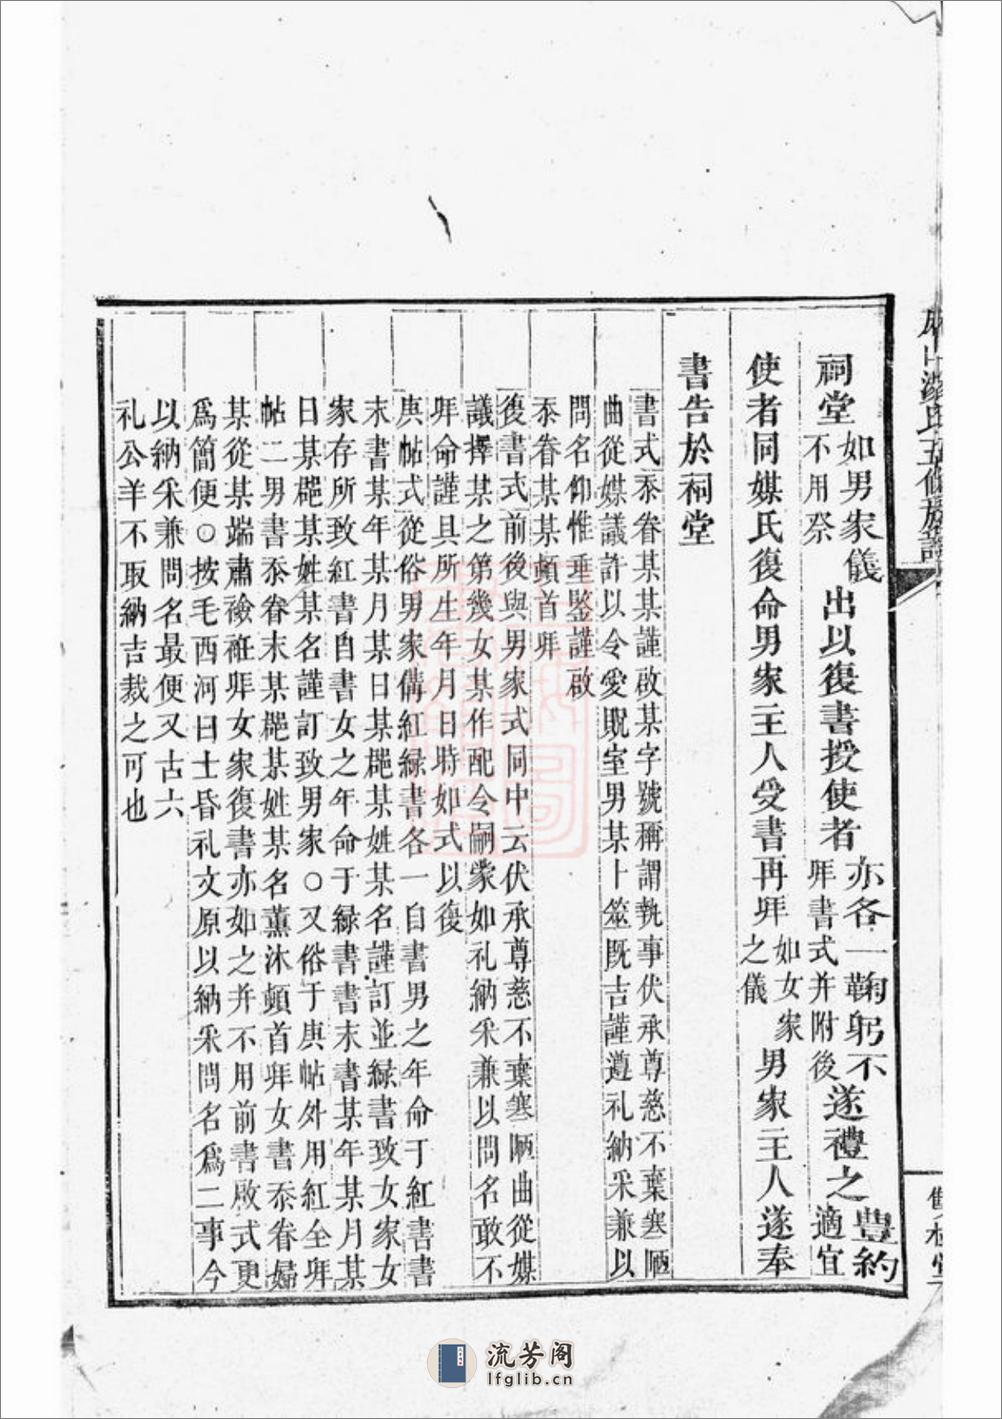 祠堂如男家儀不用祭出以復書授使者亦各一鞠躬不拜書式并附後遂禮之豐約適宜
使者同媒氏復命男家主人受書再拜如女家之儀男家主人遂奉
書告於祠堂
書式忝眷某某謹啟某字號稱謂執事伏承尊慈不棄寒陋
曲從媒議許以令愛貺室男某卜筮既吉謹遵礼納采兼以
問名仰惟垂鑒謹啟
忝眷某某頓首拜
復書式前後與男家式同中云伏承尊慈不棄寒陋曲從媒
議擇某之第幾女某作配令嗣蒙如礼納采兼以問名敢不
拜命謹具所生年月日時如式以復
庚帖式從俗男家俻紅緑書各一自書男之年命于紅書書
末書某年某月某日某郡某姓某名謹訂並緑書致女家女
家存所致紅書自書女之年命于緑書書末書某年某月某
日某郡某姓某名謹訂致男家○又俗于庚帖外用紅全拜
帖二男書忝眷末某郡某姓某名薰沐頓首拜女書忝眷婦
某從某端肅襝衽拜女家復書亦如之并不用前書啟式更
爲簡便○按毛西河曰士昏礼文原以納采問名爲二事今
以納采兼問名最便又古六
礼公羊不取納吉裁之可也
氏五修族譜